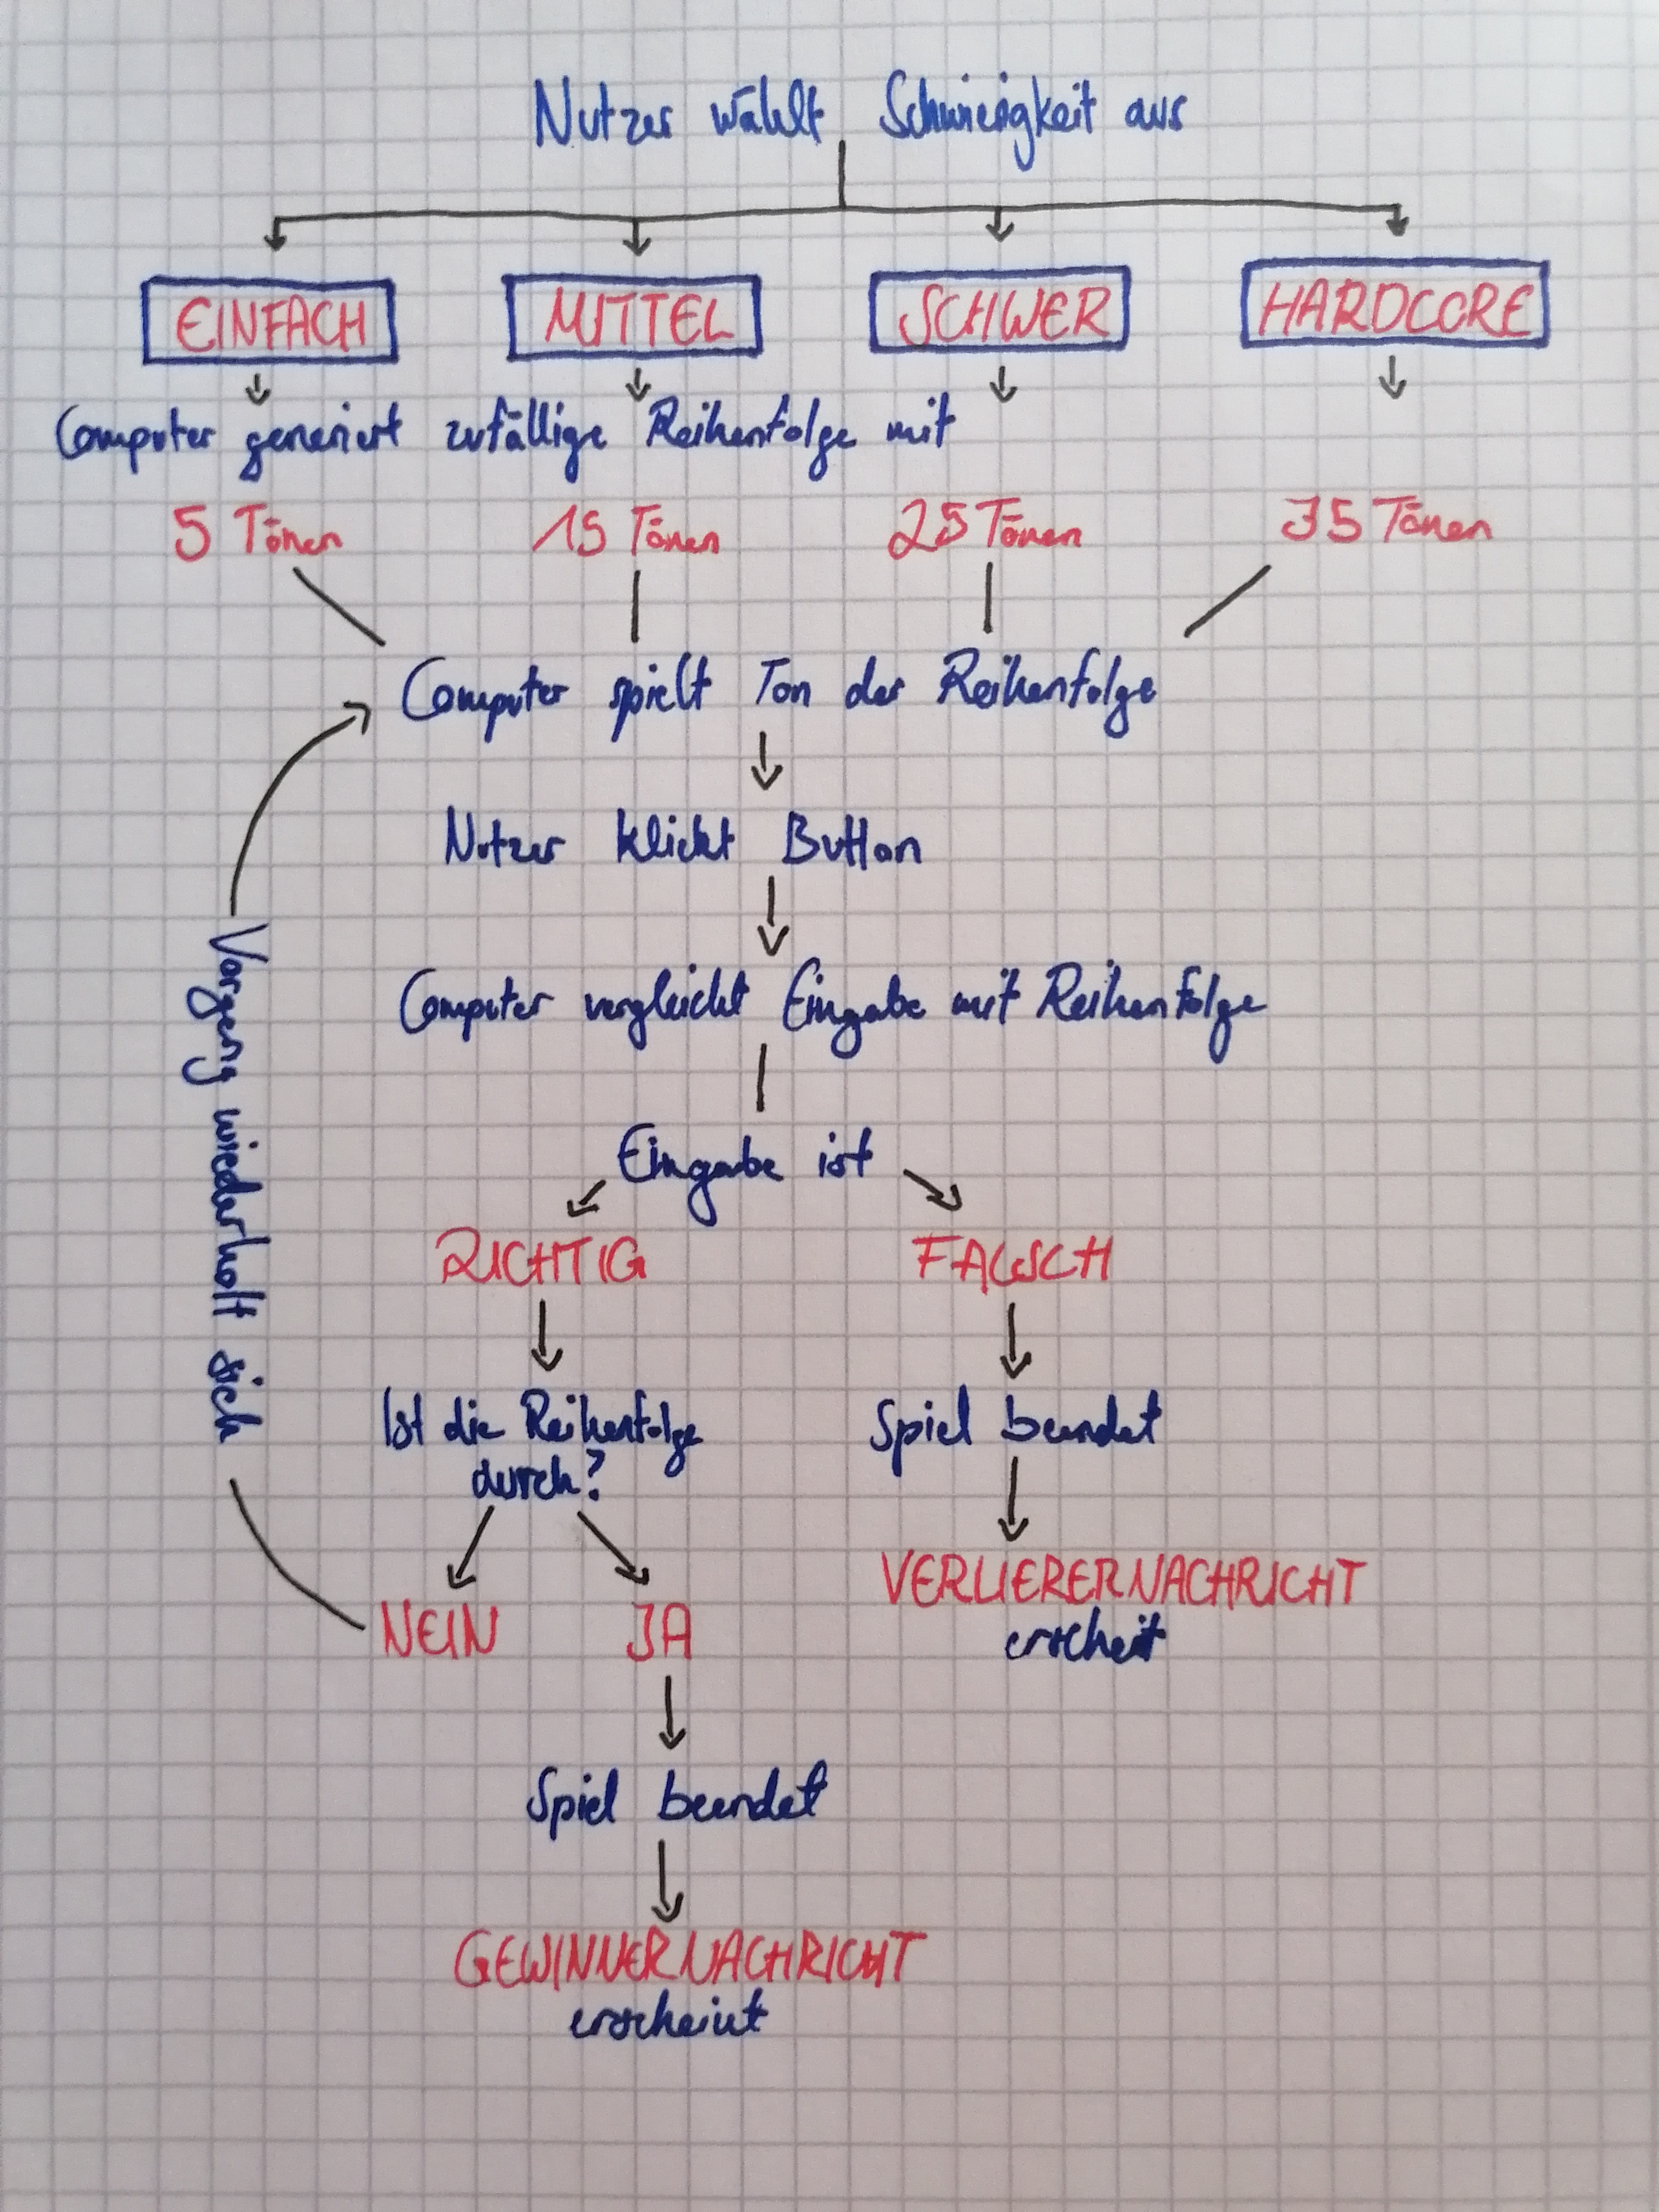 Nutzer wählt Schwierigkeit aus
EINFACH MITTEL SCHWER HARDCORE
Computer generiert zufällige Reihenfolge mit
5 Tönen 15 Tönen 25 Tönen 35 Tönen
Computer spielt Ton der Reihenfolge
Nutzer klickt Button
Computer vergleicht Eingabe mit Reihenfolge
Eingabe ist
RICHTIG FALSCH
Ist die Reihenfolge
durch?
Spiel beendet
NEIN JA
VERLIERERNACHRICHT
erscheit
Vorgang wiederholt sich
Spiel beendet
GEWINNERNACHRICHT
erscheint